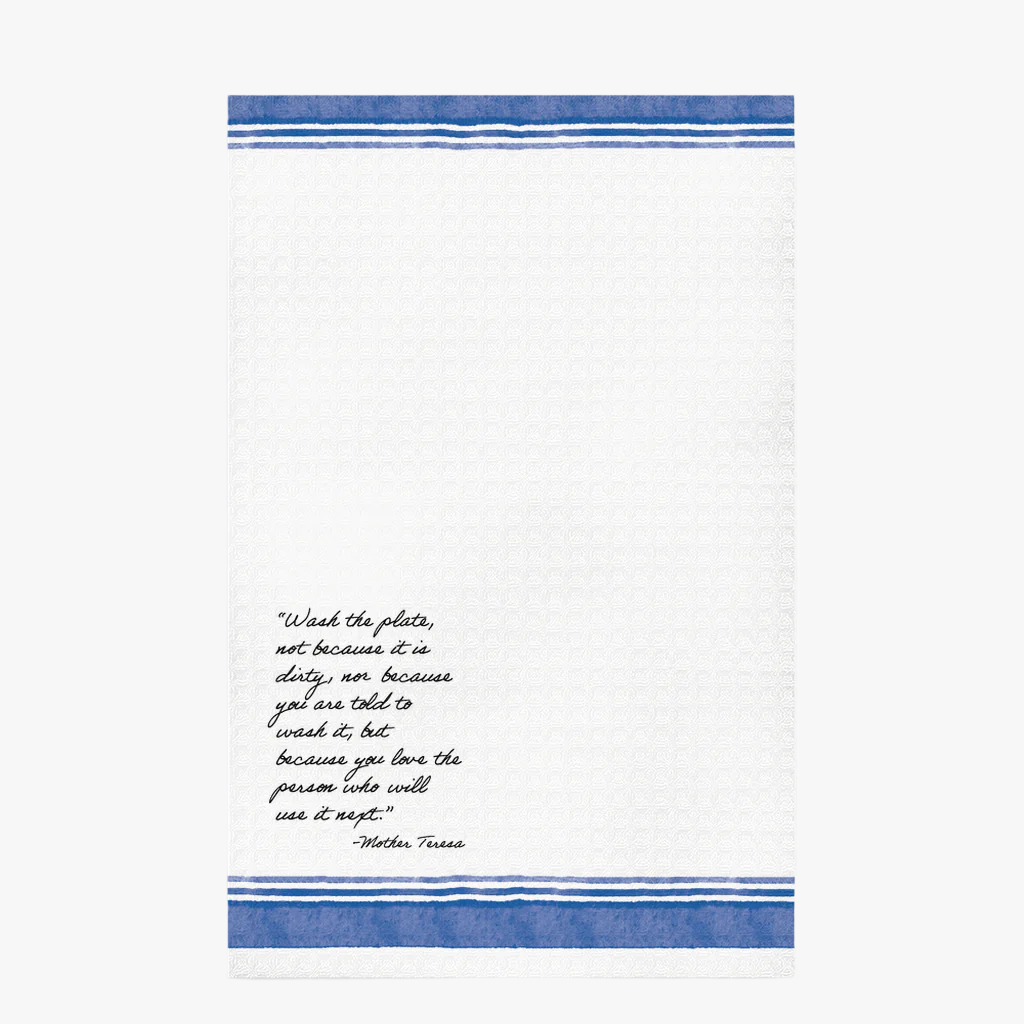 “Wash the plate,
not because it is
dirty, nor because
you are told to
wash it, but
because you love the
person who will
use it next.”
-Mother Teresa